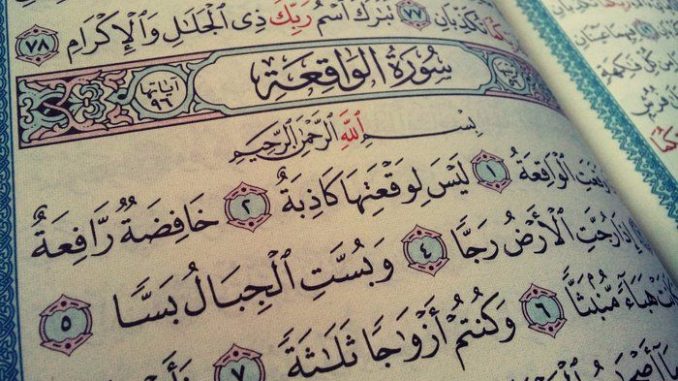 تُكَذِّبَانِ ٧٧ تَبَٰرَكَ ٱسْمُ رَبِّكَ ذِى ٱلْجَلَٰلِ وَٱلْإِكْرَامِ ٧٨
سُورَةُ الوَاقِعَةِ
آياتها ٩٦
بِسْمِ ٱللَّهِ ٱلرَّحْمَٰنِ ٱلرَّحِيمِ
ٱلْوَاقِعَةُ ١ لَيْسَ لِوَقْعَتِهَا كَاذِبَةٌ ٢ خَافِضَةٌ رَّافِعَةٌ
إِذَا رُجَّتِ ٱلْأَرْضُ رَجًّا ٤ وَبُسَّتِ ٱلْجِبَالُ بَسًّا ٥
هَبَآءً مُّنۢبَثًّا ٦ وَكُنتُمْ أَزْوَٰجًا ثَلَٰثَةً ٧